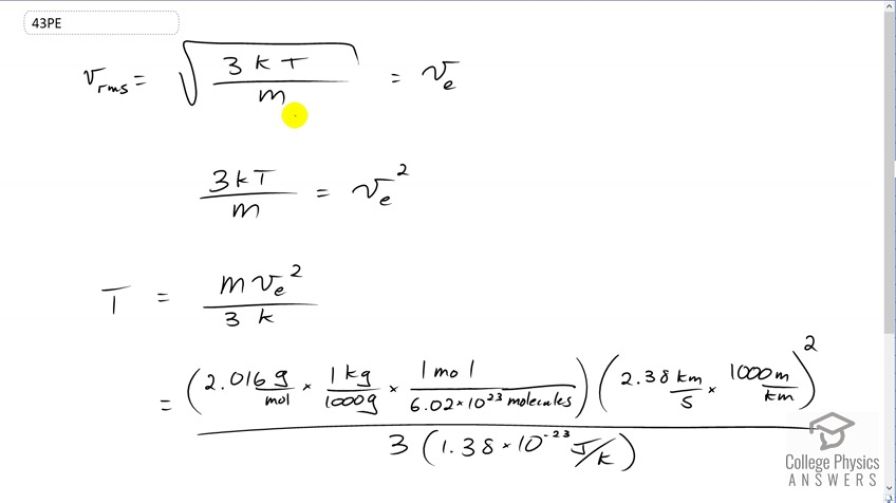 43PE
v_rms = √(3kT/m) = v_e
3kT/m = v_e²
T = m v_e² / 3k
= (2.016 g/mol × 1 kg/1000 g × 1 mol/6.02×10²³ molecules)(2.38 km/s × 1000 m/km)² / 3(1.38×10⁻²³ J/K)
College Physics
ANSWERS